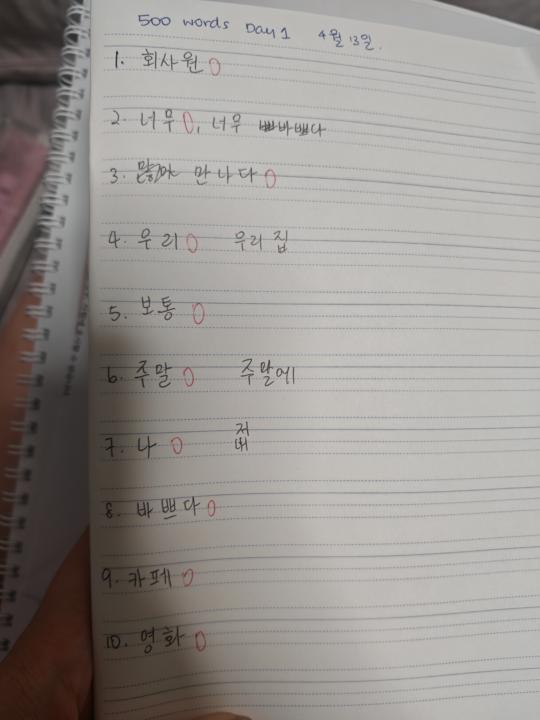 500 words Day 1 4월 13일.
1. 회사원
2. 너무, 너무 바쁘다
3. 만나다
4. 우리 우리 집
5. 보통
6. 주말 주말에
7. 나 저
내
8. 바쁘다
9. 카페
10. 영화